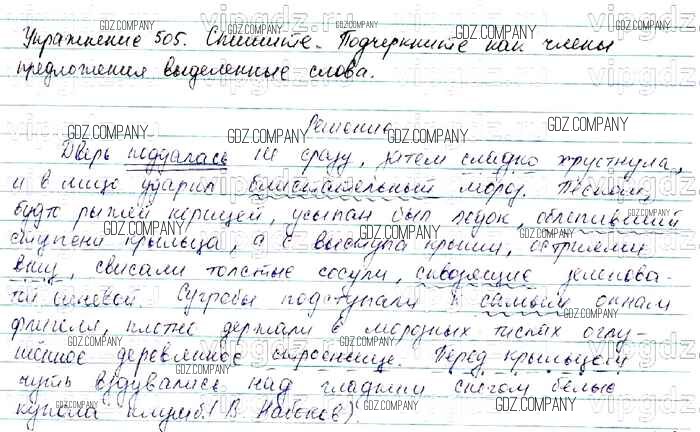 Упражнение 505. Спишите. Подчеркните как члены
предложения выделенные слова.
Решение
Дверь поддалась не сразу, затем сладко хрустнула,
и в лицо ударил блистательный мороз. Песком,
будто рыжей корицей, усыпан был ледок, облепивший
ступени крыльца, а с выступа крыши, остриями
вниз, свисали толстые сосули, сквозящие зеленова-
той синевой. Сугробы подступали к самым окнам
флигеля, плотно держали в морозных тисках оглу-
шённое деревянное строеньице. Перед крыльцом
чуть вздувались над гладким снегом белые
купола клумб. (В. Набоков)
GDZ.COMPANY
vipgdz.ru